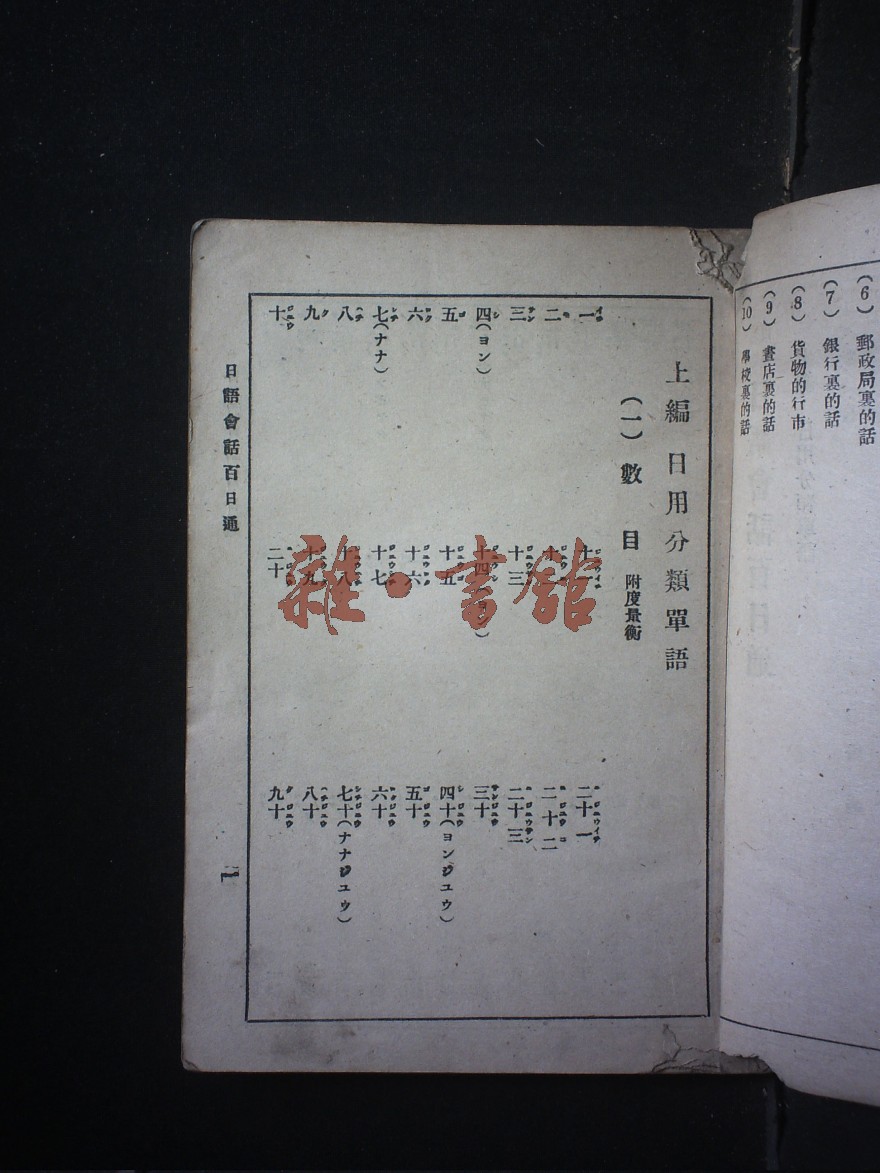 (6) 郵政局裏的話
(7) 銀行裏的話
(8) 貨物的行市
(9) 書店裏的話
(10) 學校裏的話
上編 日用分類單語
(一) 數 目 附度量衡
一
二
三
四(ヨン)
五
六
七(ナナ)
八
九
十
十一
十二
十三
十四(ヨン)
十五
十六
十七
十八
十九
二十
二十一
二十二
二十三
三十
四十(ヨンジユウ)
五十
六十
七十(ナナジユウ)
八十
九十
日語會話百日通
一
雜·書館